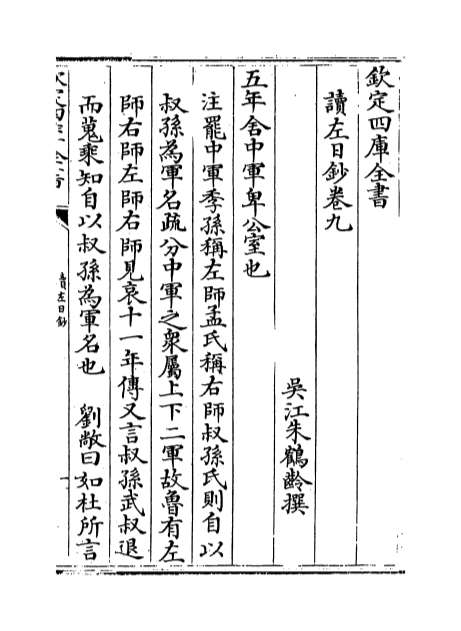 欽定四庫全書
讀左日鈔卷九
吳江朱鶴齡撰
五年舍中軍卑公室也
注罷中軍季孫稱左師孟氏稱右師叔孫氏則自以
叔孫為軍名疏分中軍之衆屬上下二軍故魯有左
師右師左師右師見哀十一年傳又言叔孫武叔退
而蒐乘知自以叔孫為軍名也 劉敞曰如杜所言
讀左日鈔
一